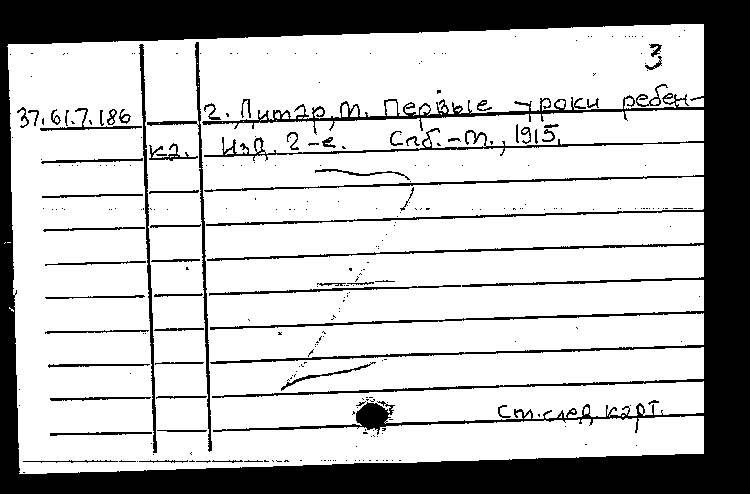 3
37.61.7.186 2. Литар, М. Первые уроки ребен-
ка. Изд. 2-е. Спб.-М., 1915.
См. след. карт.